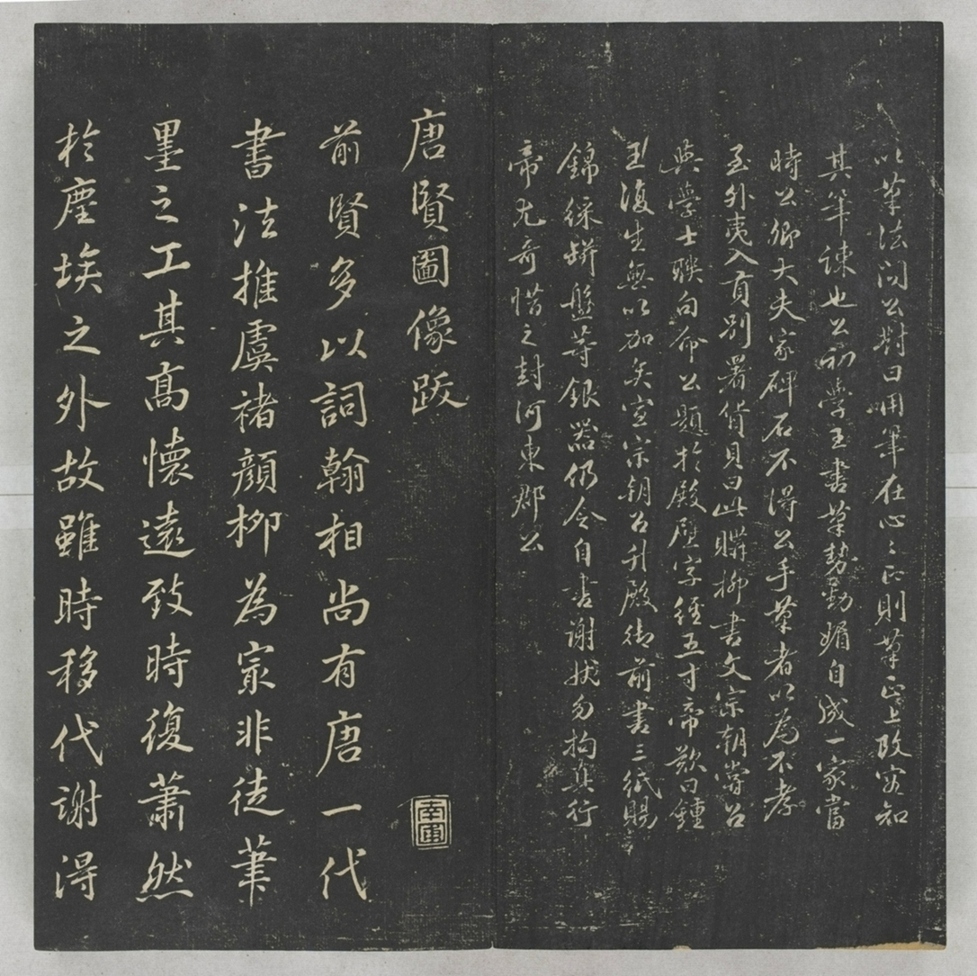 以筆法問公對曰用筆在心心正則筆正上改容知
其筆諫也公初學王書筆勢勁媚自成一家當
時公卿大夫家碑石不得公手筆者以為不孝
至外夷入貢別署貨貝曰此購柳書文宗朝嘗召
與學士聯句命公題於殿壁字徑五寸帝歎曰鍾
王復生無以加矣宣宗朝召升殿御前書三紙賜
錦綵缾盤等銀器仍令自書謝狀勿拘真行
帝尤奇惜之封河東郡公
唐賢圖像跋
前賢多以詞翰相尚有唐一代
書法推虞褚顏柳為寂非徒筆
墨之工其高懷遠致時復蕭然
於塵埃之外故雖時移代謝得